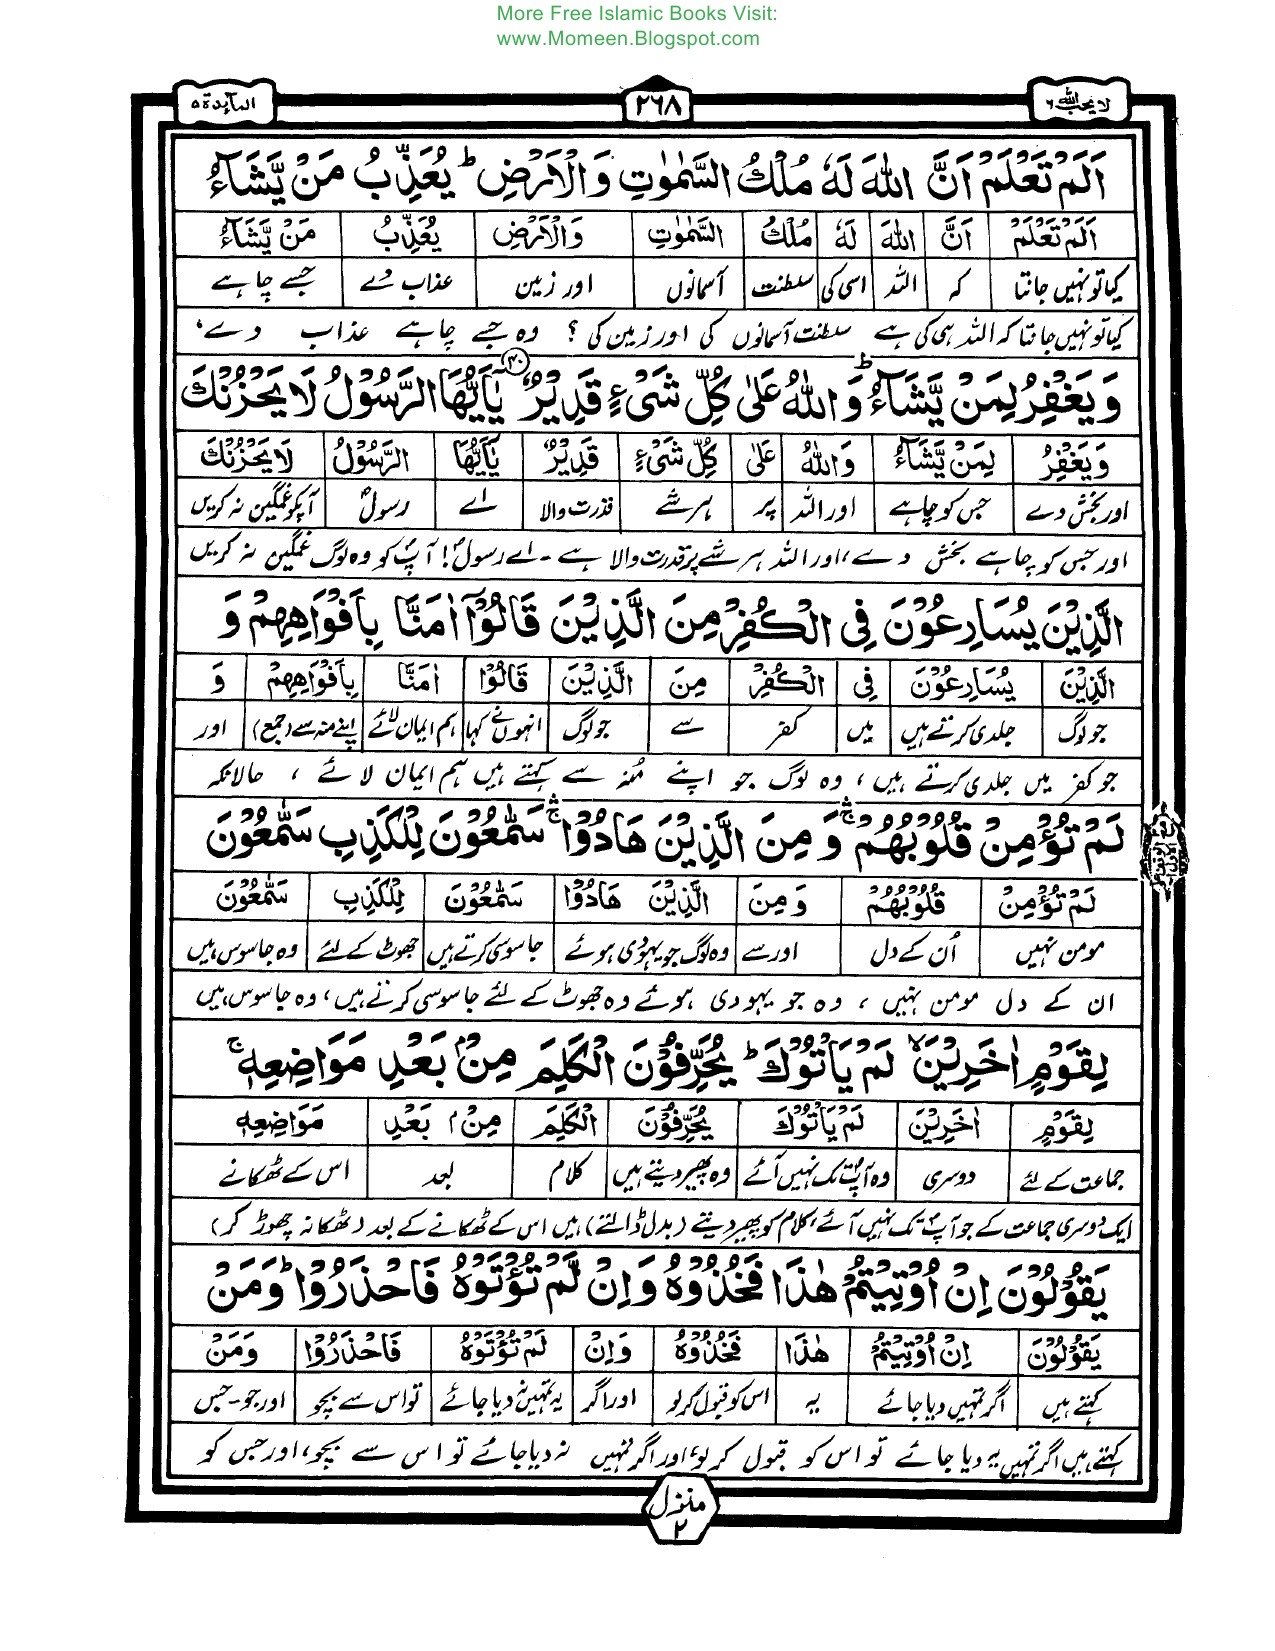 More Free Islamic Books Visit:
www.Momeen.Blogspot.com
لا یحب اللہ ٦ ٢٦٨ المآىِٕدة ٥
اَلَمْ تَعْلَمْ اَنَّ اللّٰهَ لَهٗ مُلْكُ السَّمٰوٰتِ وَالْاَرْضِ ؕ یُعَذِّبُ مَنْ یَّشَآءُ
اَلَمْ تَعْلَمْ اَنَّ اللّٰهَ لَهٗ مُلْكُ السَّمٰوٰتِ وَالْاَرْضِ یُعَذِّبُ مَنْ یَّشَآءُ
کیا تو نہیں جانتا کہ اللہ اسی کی سلطنت آسمانوں اور زمین عذاب دے جسے چاہے
کیا تو نہیں جانتا کہ اللہ ہی کی ہے سلطنت آسمانوں کی اور زمین کی؟ وہ جسے چاہے عذاب دے،
وَیَغْفِرُ لِمَنْ یَّشَآءُ ؕ وَاللّٰهُ عَلٰی كُلِّ شَیْءٍ قَدِیْرٌ ۴۰ یٰۤاَیُّهَا الرَّسُوْلُ لَا یَحْزُنْكَ
وَیَغْفِرُ لِمَنْ یَّشَآءُ وَاللّٰهُ عَلٰی كُلِّ شَیْءٍ قَدِیْرٌ یٰۤاَیُّهَا الرَّسُوْلُ لَا یَحْزُنْكَ
اور بخش دے جس کو چاہے اور اللہ پر ہر شے قدرت والا اے رسولؐ آپکو غمگین نہ کریں
اور جس کو چاہے بخش دے، اور اللہ ہر شے پر قدرت والا ہے۔ اے رسولؐ! آپؐ کو وہ لوگ غمگین نہ کریں
الَّذِیْنَ یُسَارِعُوْنَ فِی الْكُفْرِ مِنَ الَّذِیْنَ قَالُوْۤا اٰمَنَّا بِاَفْوَاهِهِمْ وَ
الَّذِیْنَ یُسَارِعُوْنَ فِی الْكُفْرِ مِنَ الَّذِیْنَ قَالُوْۤا اٰمَنَّا بِاَفْوَاهِهِمْ وَ
جو لوگ جلدی کرتے ہیں میں کفر سے جو لوگ انہوں نے کہا ہم ایمان لائے اپنے منہ سے (جمع) اور
جو کفر میں جلدی کرتے ہیں، وہ لوگ جو اپنے مُنہ سے کہتے ہیں ہم ایمان لائے، حالانکہ
لَمْ تُؤْمِنْ قُلُوْبُهُمْ ۛۚ وَمِنَ الَّذِیْنَ هَادُوْا ۛۚ سَمّٰعُوْنَ لِلْكَذِبِ سَمّٰعُوْنَ
لَمْ تُؤْمِنْ قُلُوْبُهُمْ وَمِنَ الَّذِیْنَ هَادُوْا سَمّٰعُوْنَ لِلْكَذِبِ سَمّٰعُوْنَ
مومن نہیں اُن کے دل اور سے وہ لوگ جو یہودی ہوئے جاسوسی کرتے ہیں جھوٹ کے لئے وہ جاسوس ہیں
ان کے دل مومن نہیں، وہ جو یہودی ہوئے وہ جھوٹ کے لئے جاسوسی کرتے ہیں، وہ جاسوس ہیں
لِقَوْمٍ اٰخَرِیْنَ ۙ لَمْ یَاْتُوْكَ ؕ یُحَرِّفُوْنَ الْكَلِمَ مِنْۢ بَعْدِ مَوَاضِعِهٖ ۚ
لِقَوْمٍ اٰخَرِیْنَ لَمْ یَاْتُوْكَ یُحَرِّفُوْنَ الْكَلِمَ مِنْۢ بَعْدِ مَوَاضِعِهٖ
جماعت کے لئے دوسری وہ آپؐ تک نہیں آئے وہ پھیر دیتے ہیں کلام بعد اس کے ٹھکانے
ایک دوسری جماعت کے جو آپؐ تک نہیں آئے، کلام کو پھیر دیتے (بدل ڈالتے) ہیں اس کے ٹھکانے کے بعد (ٹھکانہ چھوڑ کر)
یَقُوْلُوْنَ اِنْ اُوْتِیْتُمْ هٰذَا فَخُذُوْهُ وَاِنْ لَّمْ تُؤْتَوْهُ فَاحْذَرُوْا ؕ وَمَنْ
یَقُوْلُوْنَ اِنْ اُوْتِیْتُمْ هٰذَا فَخُذُوْهُ وَاِنْ لَمْ تُؤْتَوْهُ فَاحْذَرُوْا وَمَنْ
کہتے ہیں اگر تمہیں دیا جائے یہ اس کو قبول کر لو اور اگر یہ تمہیں نہ دیا جائے تو اس سے بچو اور جو۔جس
کہتے ہیں اگر تمہیں یہ دیا جائے تو اس کو قبول کر لو، اور اگر تمہیں نہ دیا جائے تو اس سے بچو، اور جس کو
منزل ٢